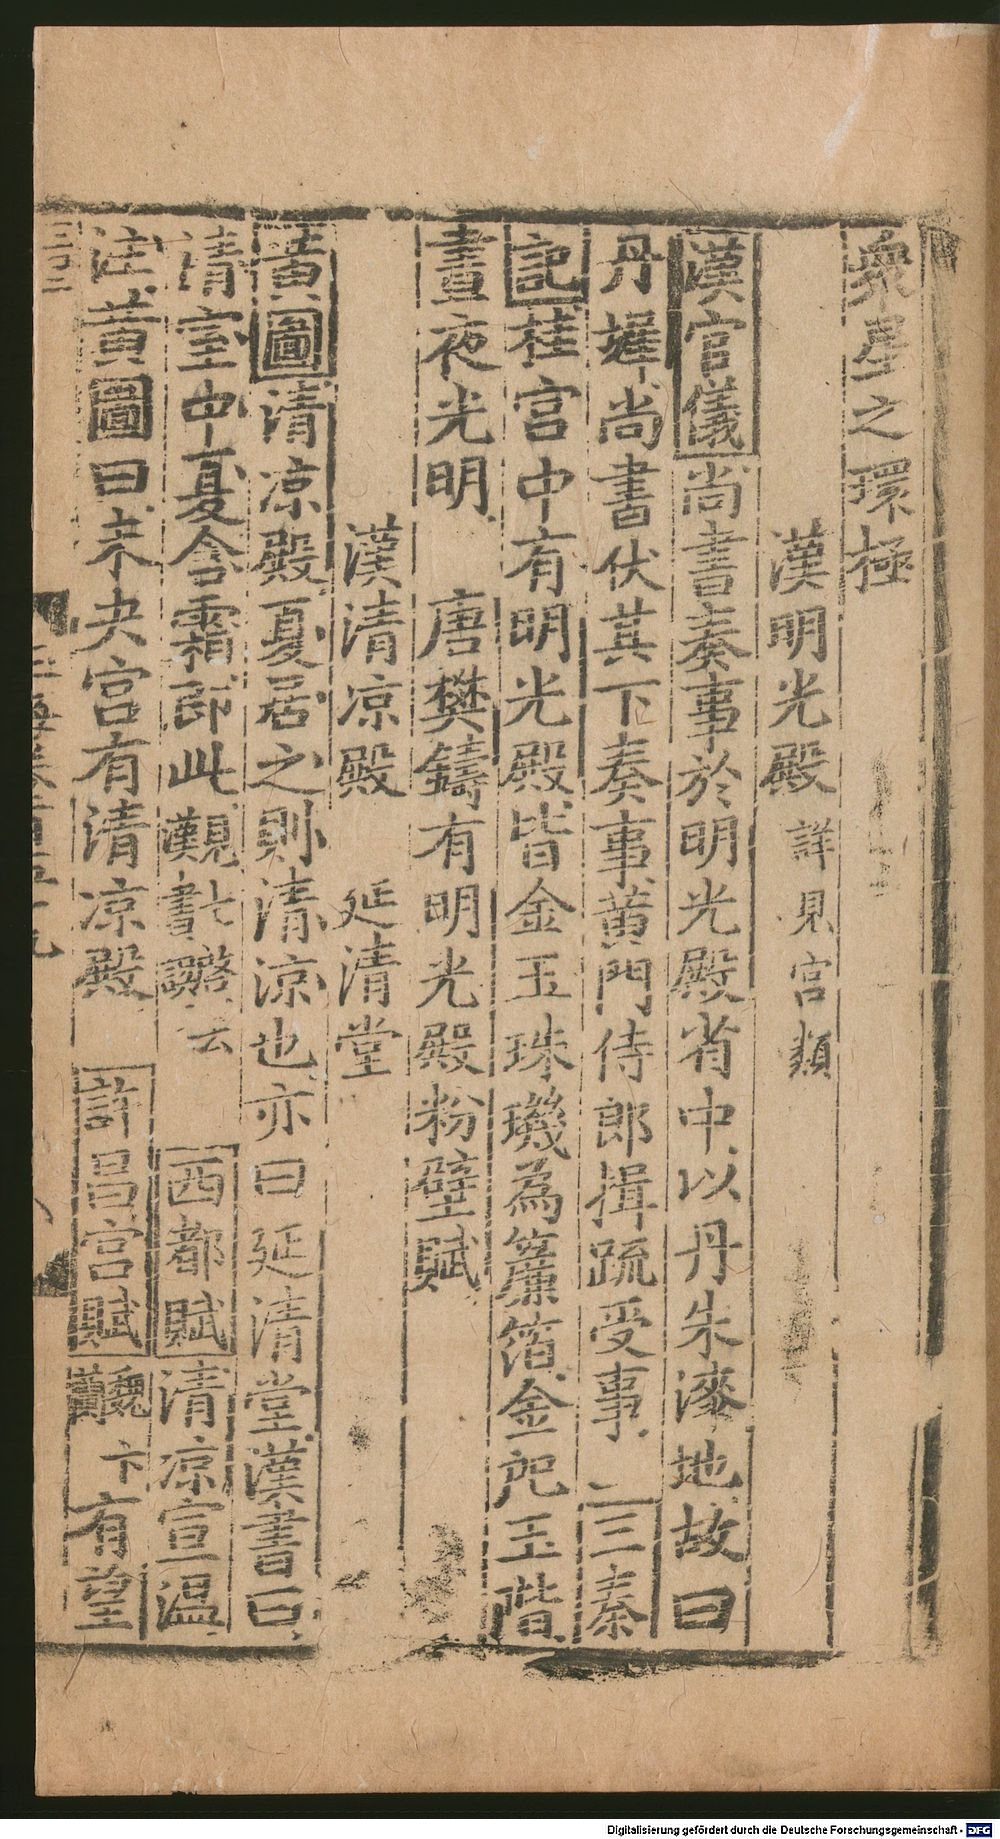 衆星之環極
漢明光殿詳見宮類
漢官儀尚書奏事於明光殿省中以丹朱漆地故曰
丹墀尚書伏其下奏事黃門侍郎揖䟽受事三秦
記桂宮中有明光殿皆金玉珠璣為簾箔金戺玉階
晝夜光明 唐樊鑄有明光殿粉壁賦
漢清凉殿 延清堂
黃圖清凉殿夏居之則清凉也亦曰延清堂漢書曰
清室中夏含霜即此觀書七略云西都賦清凉宣溫
注黃圖曰未央宮有清凉殿許昌宮賦卞蘭有望
Digitalisierung gefördert durch die Deutsche Forschungsgemeinschaft - DFG